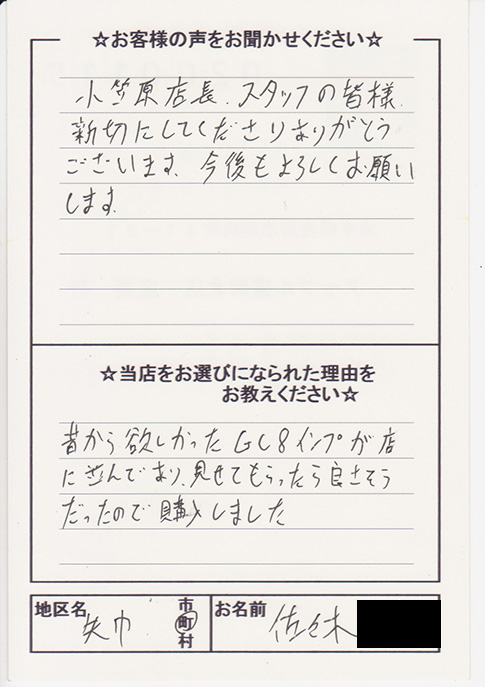 ☆お客様の声をお聞かせください☆
小笠原店長、スタッフの皆様、
新切にしてくださりありがとう
ございます、今後もよろしくお願い
します、
☆当店をお選びになられた理由を
お教えください☆
昔から欲しかったGC8インプが店
に並んでおり、見せてもらったら良さそう
だったので購入しました
地区名 矢巾 市町村 お名前 佐々木